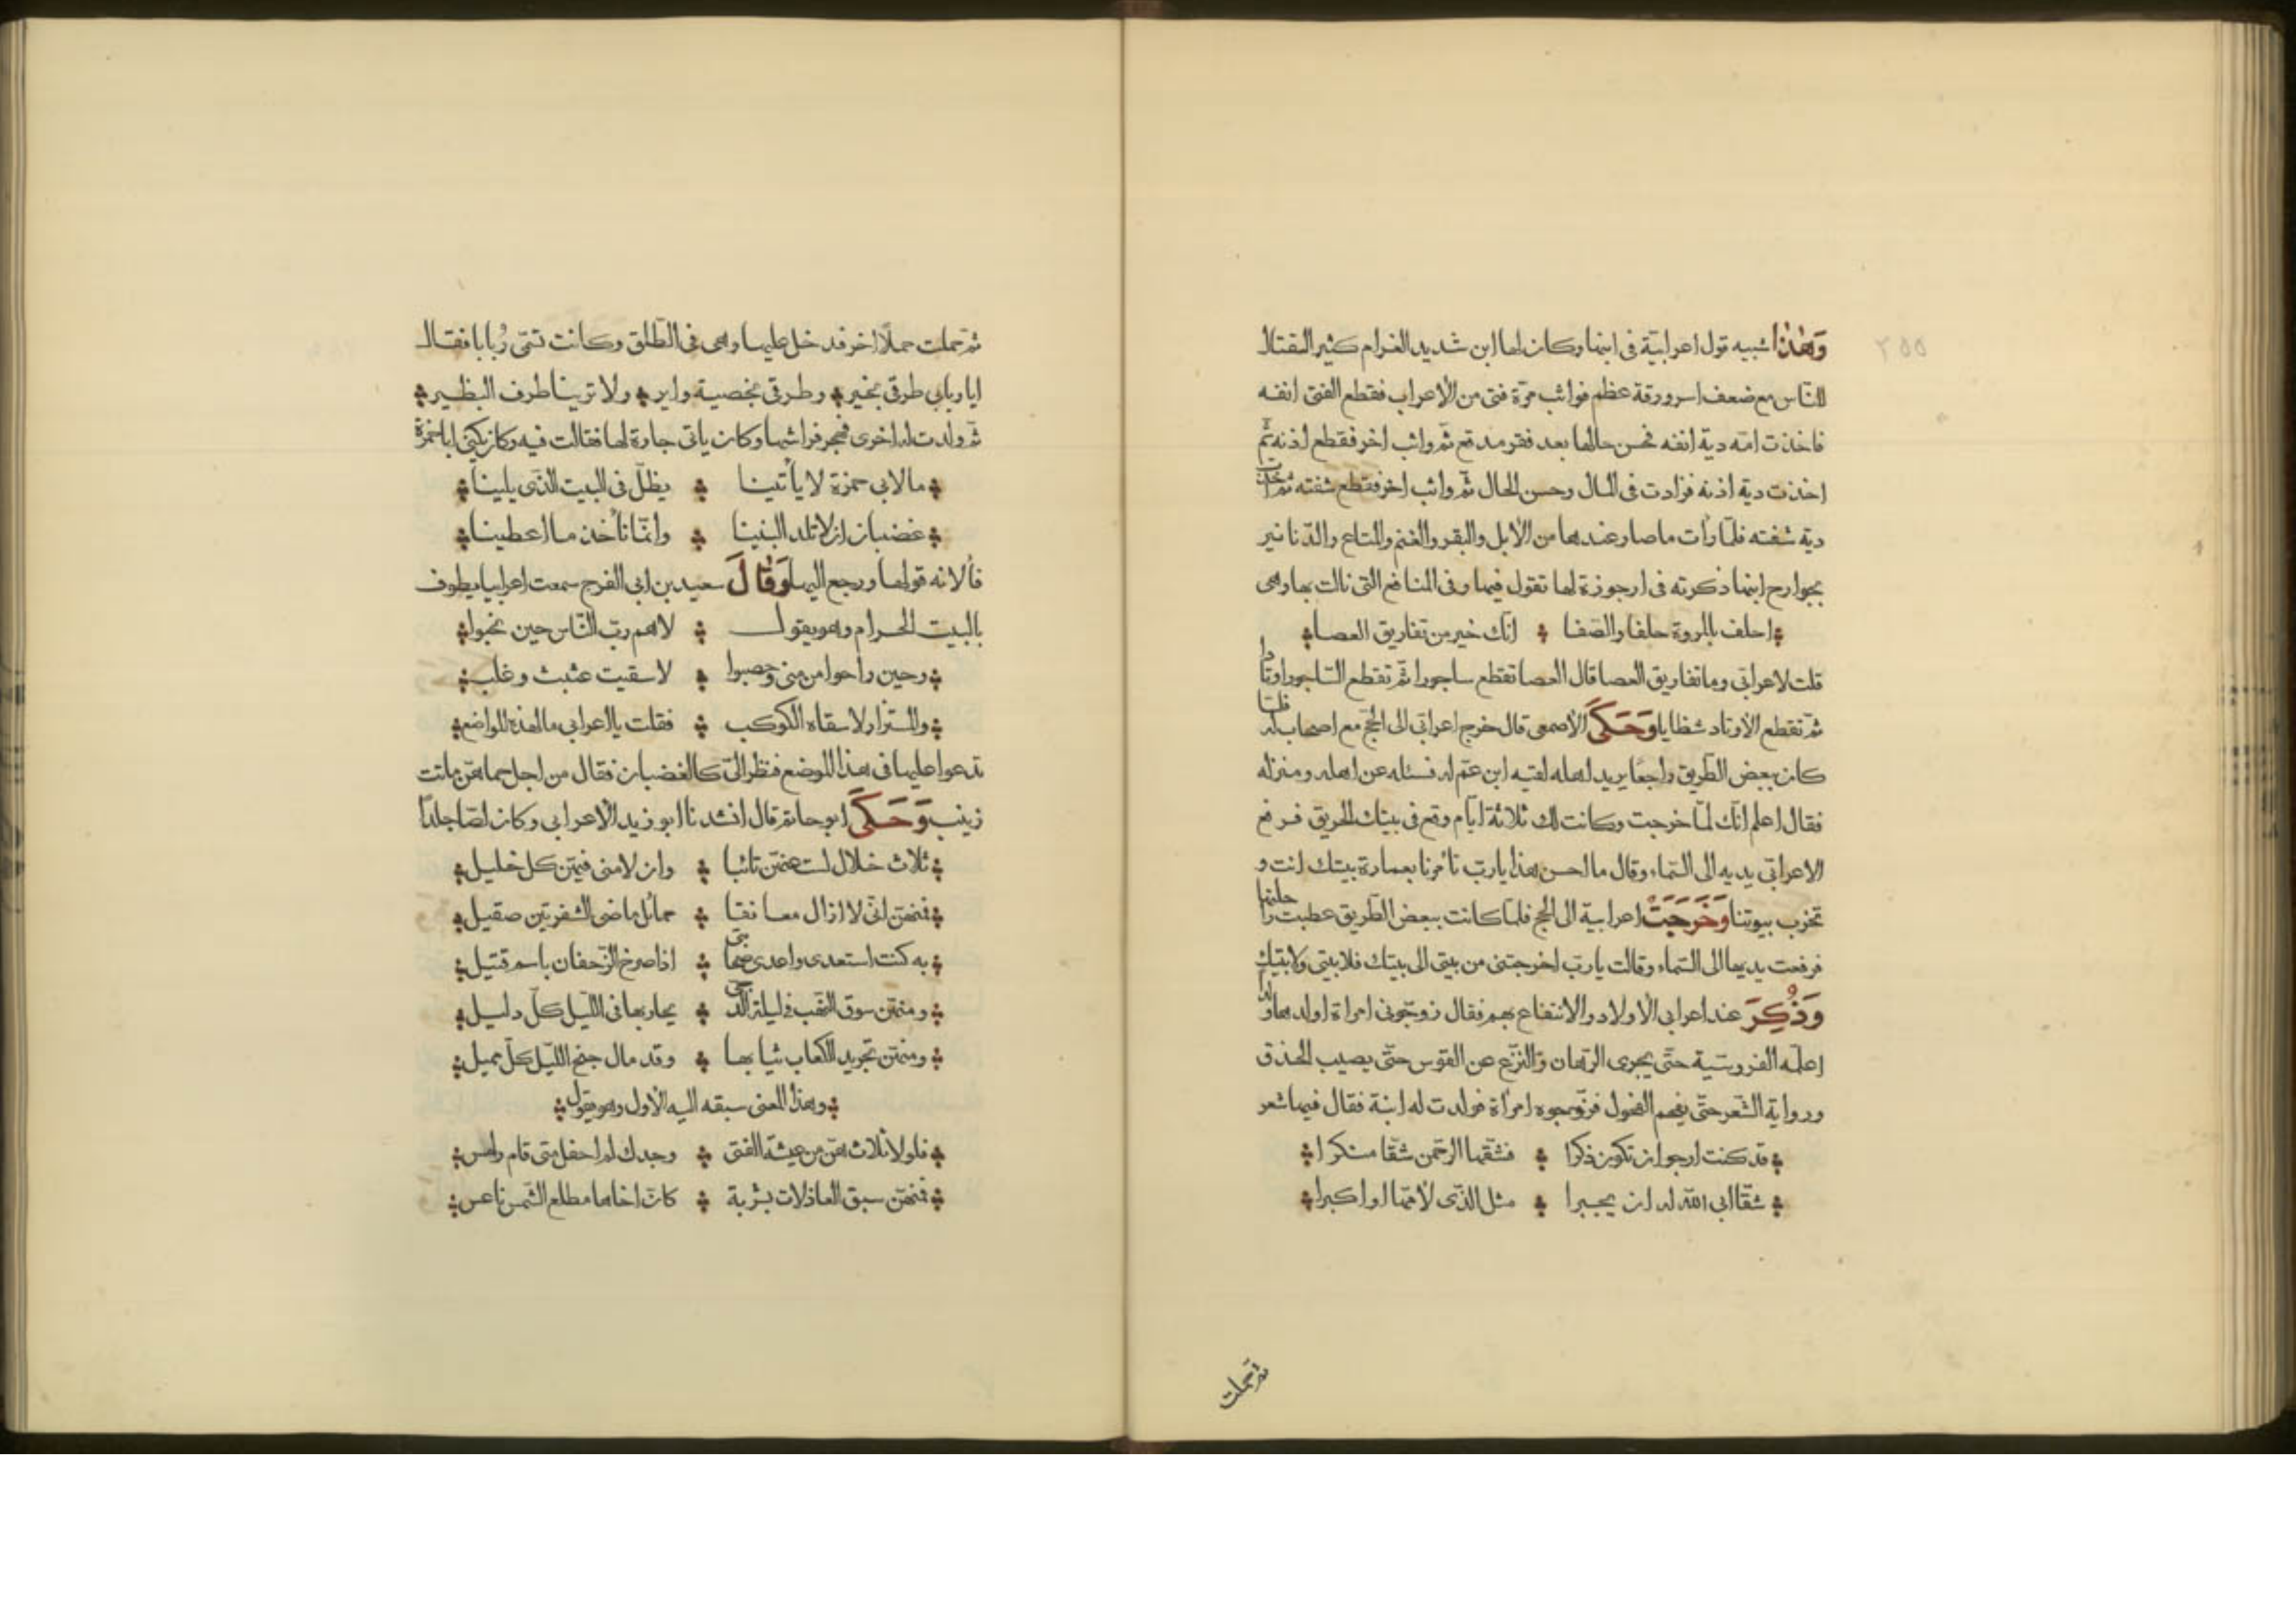 ٢٥٥
وَهٰذَا شبيه قول اعرابيّة فى ابنها وكان لها ابن شديد الغرام كثير التقتال
للنّاس مع ضعف اسر ورقة عظم فواثب مرّة فتى من الاعراب فقطع الفتى انفه
فاخذت امّه دية انفه فحسن حالها بعد فقر مدقع ثمّ واثب اخر فقطع اذنه ثمّ
اخذت دية اذنه فزادت فى المال وحسن الحال ثمّ واثب اخر فقطع شفته ثمّ اخذت
دية شفته فلمّا رأت ما صار عندها من الابل والبقر والغنم والمتاع والدّنانير
بجوارح ابنها ذكرته فى ارجوزة لها تقول فيها وفى المنافع التى نالت بها وهى
احلف بالمروة حلفا والصّفا انّك خير من تفاريق العصا
قلت لاعرابّى وما تفاريق العصا قال العصا تقطع ساجورا ثمّ تقطع السّاجور اوتادا
ثمّ تقطع الاوتاد شظايا وَحَكَى الاصمعى قال خرج اعرابّى الى الحجّ مع اصحاب له فلمّا
كان ببعض الطّريق راجعًا يريد اهله لقيه ابن عمّ له فسئله عن اهله ومنزله
فقال اعلم انّك لمّا خرجت وكانت لك ثلاثة ايّام وقع فى بيتك الحريق فرفع
الاعرابّى يديه الى السّماء وقال ما احسن هذا يا ربّ تأمرنا بعمارة بيتك انت و
تخرب بيوتنا وَخَرَجَتْ اعرابية الى الحج فلمّا كانت ببعض الطّريق عطبت راحلتها
فرفعت يديها الى السّماء وقالت يا ربّ اخرجتنى من بيتى الى بيتك فلا بيتى ولا بيتك
وَذُكِرَ عند اعرابى الاولاد والانتفاع بهم فقال زوّجونى امراة اولدها ولدا
اعلّمه الفروسّية حتّى يجرى الرّهان والنّزع عن القوس حتّى يصيب الحذق
ورواية الشّعر حتّى يفحم الفحول فزوّجوه امرأة فولدت له ابنة فقال فيها شعر
قد كنت ارجو ان تكون ذكرا فشقّها الرّحمن شقّا منكرا
شقّا ابى اللّه له ان يجبرا مثل الذّى لامّها او اكبرا
ثمّ حملت
ثمّ حملت حملًا اخر فدخل عليها وهى فى الطّلق وكانت تسمّى رُبابا فقال
ايا ربابى طرقى بخير وطرقى بخصية واير ولا ترينا طرف البظير
ثمّ ولدت له اخرى فهجر فراشها وكان ياتى جارة لها فقالت فيه وكان يكنى ابا حمزة
ما لابى حمزة لا يأتينا يظلّ فى البيت الذّى يلينا
غضبان ان لا تلد البنينا وانّما نأخذ ما اعطينا
فألانه قولها ورجع اليها وَقَالَ سعيد بن ابى الفرج سمعت اعرابيا يطوف
بالبيت الحرام وهو يقول لاهم ربّ النّاس حين نحبوا
وحين راحوا من منى وحصبوا لا سقيت عثبث وغلب
والمستزار لا سقاه الكوكب فقلت يا اعرابى ما لهذه المواضع
تدعوا عليها فى هذا الموضع فنظر الىّ كالغضبان فقال من اجل حماهنّ ماتت
زينب وَحَكَى ابو حاتم قال انشدنا ابو زيد الاعرابى وكان لصّا جلدًا
ثلاث خلال لست عنهنّ تائبا وان لامنى فيهنّ كل خليل
فمنهنّ انّى لا ازال معانقا حمائل ماضى الشفرتين صقيل
به كنت استعدى واعدى صحابتى اذا صرخ الزّحفان باسم قتيل
ومنهنّ سوق النّهب فى ليلة الدّجى يحار بها فى اللّيل كلّ دليل
ومنهنّ تجريد الكعاب ثيابها وقد مال جنح اللّيل كلّ مميل
وهذا المعنى سبقه اليه الاول وهو يقول
فلولا ثلاث هنّ من عيشة الفتى وجدك لم احفل متى قام رامس
فمنهنّ سبق العاذلات بشربة كانّ اخاها مطلع الشّمس ناعس